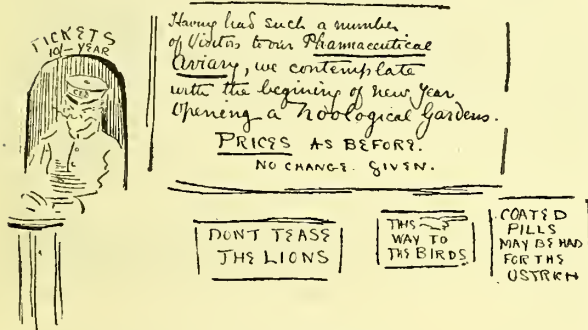 TICKETS
10/- YEAR
Having had such a number
of Visitors to our Pharmaceutical
Aviary, we contemplate
with the begining of new year
Opening a Zoological Gardens.
PRICES AS BEFORE.
NO CHANGE. GIVEN.
DONT TEASE
THE LIONS
THIS
WAY TO
THE BIRDS
COATED
PILLS
MAY BE HAD
FOR THE
OSTRICH